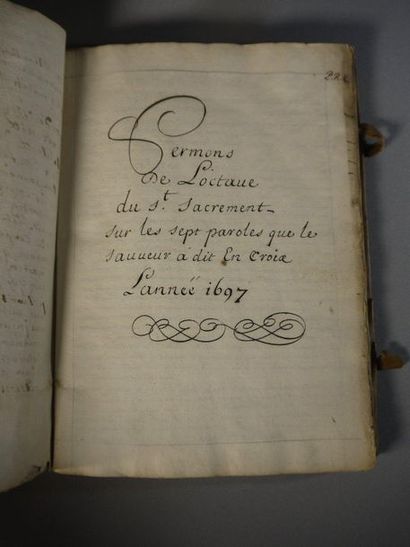 Sermons
De L'octaue
du s.t sacrement
sur les sept paroles que le
sauueur a dit En Croix
L'année 1697